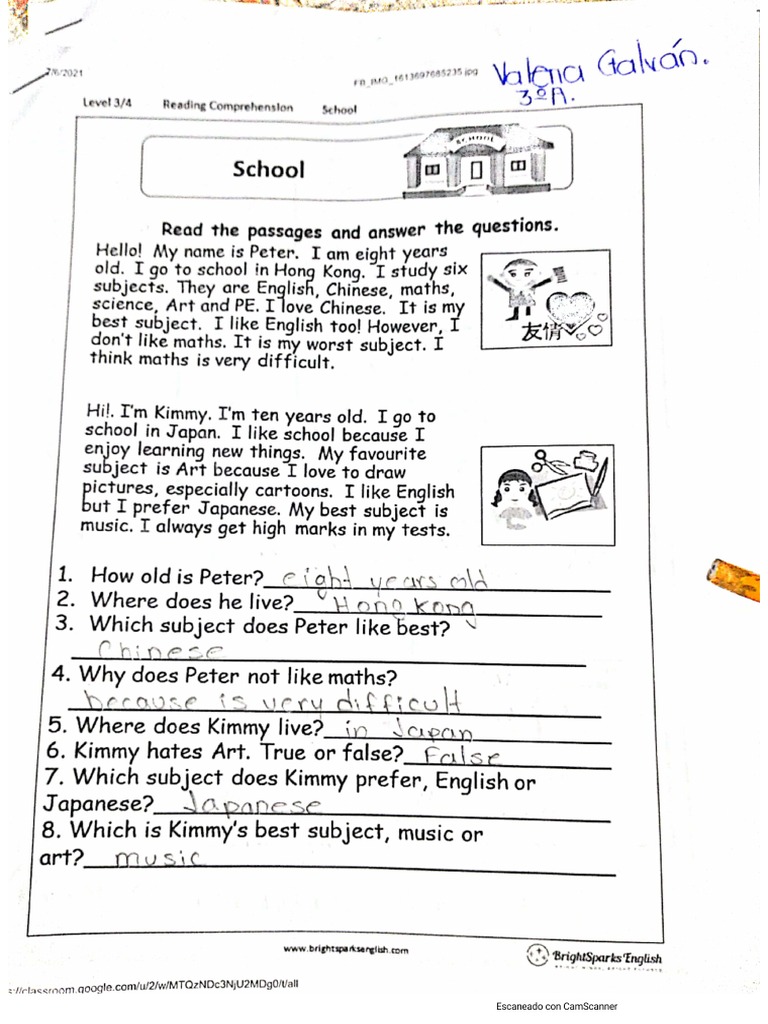 7/6/2021
FB_IMG_1613697685235.jpg
Valeria Galván.
3ºA.
Level 3/4 Reading Comprehension School
SCHOOL
School
Read the passages and answer the questions.
Hello! My name is Peter. I am eight years
old. I go to school in Hong Kong. I study six
subjects. They are English, Chinese, maths,
science, Art and PE. I love Chinese. It is my
best subject. I like English too! However, I
don't like maths. It is my worst subject. I
think maths is very difficult.
友情
Hi!. I'm Kimmy. I'm ten years old. I go to
school in Japan. I like school because I
enjoy learning new things. My favourite
subject is Art because I love to draw
pictures, especially cartoons. I like English
but I prefer Japanese. My best subject is
music. I always get high marks in my tests.
1. How old is Peter? eight years old
2. Where does he live? Hong Kong
3. Which subject does Peter like best?
Chinese
4. Why does Peter not like maths?
because is very difficult
5. Where does Kimmy live? in Japan
6. Kimmy hates Art. True or false? False
7. Which subject does Kimmy prefer, English or
Japanese? Japanese
8. Which is Kimmy's best subject, music or
art? music
www.brightsparksenglish.com
BrightSparks English
s://classroom.google.com/u/2/w/MTQzNDc3NjU2MDg0/t/all
Escaneado con CamScanner